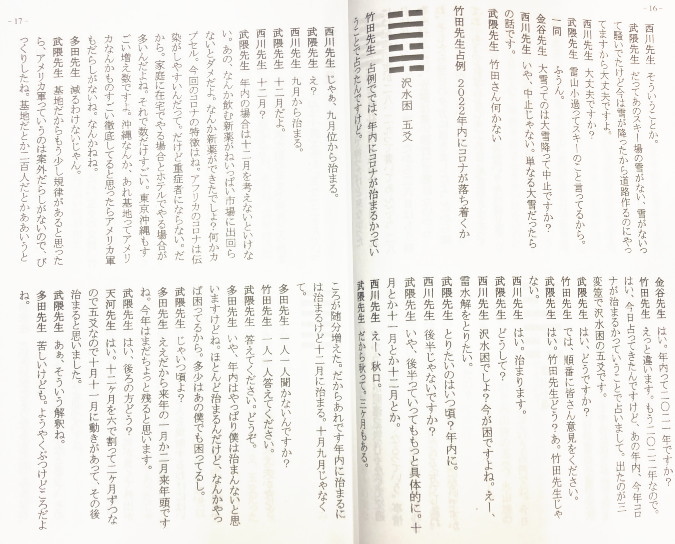 -16-
西川先生　そういうことか。
武隈先生　だってあのスキー場の雪がない、雪がないっ
て騒いでたけど今は雪が降ったから道路作るのにやっ
てますから大丈夫ですよ。
西川先生　大丈夫ですか？
武隈先生　雷山小過ってスキーのこと言ってるから。
一同　ふうん。
金谷先生　大雪ってのは大雪降って中止ですか？
西川先生　いや、中止じゃない。単なる大雪だったら
の話です。
武隈先生　竹田さん何かない
竹田先生占例　２０２２年内にコロナが落ち着くか
沢水困　五爻
竹田先生　占例でいでは、年内にコロナが治まるかってい
うことで占ったんですけど。
金谷先生　はい。年内って二〇二一年ですか？
竹田先生　えっと違います。もう二〇二二年なので。
はい、今日占ってきたんですけど、あの年内、今年コロ
ナが治まるかっていうことで占いまして。出たのが三
変筮で沢水困の五爻です。
武隈先生　はい、どうですか？
竹田先生　では、順番に皆さん意見をください。
武隈先生　はい。竹田先生どう？あ。竹田先生じゃ
ない。
西川先生　はい。治まります。
武隈先生　どうして？
西川先生　沢水困でしょ？今が困ですよね。えー、
雷水解をとりたい。
武隈先生　とりたいのはいつ頃？年内に。
西川先生　後半じゃないですか？
武隈先生　いや、後半っていってももっと具体的に。十
月とか十一月とか十二月とか。
西川先生　えー、秋口。
武隈先生　だから秋って。三ヶ月もある。
-17-
西川先生　じゃあ、九月位から治まる。
武隈先生　え？
西川先生　九月から治まる。
武隈先生　十二月だよ。
西川先生　十二月？
武隈先生　年内の場合は十二月を考えないといけな
い。あの、なんか飲む新薬がねいっぱい市場に出回ら
ないとダメだよ。なんか新薬ができたでしょ？何かカ
プセル。今回のコロナの特徴はね。アフリカのコロナは伝
染がしやすいんだって、だけど重症者にならない。だ
から。家庭に在宅でやる場合とホテルでやる場合が
多いんだよね。それで数だけすごい。東京沖縄もす
ごい増え数ですー。沖縄なんか、あれ基地ってアメリ
カなんかものすごい徹底してると思ったらアメリカ軍
もだらしがないね。なんかねね。
多田先生　減るわけないじゃん。
武隈先生　基地だからもう少し規律があると思った
ら、アメリカ軍っていうのは案外だらしがないので、び
っくりしたね。基地だとか二百人だとかああいうと
ころが随分増えた。だからあれです年内に治まるに
は治まるけど十二月に治まる。十月九月じゃなく
て。
多田先生　一人一人聞かないんですか？
竹田先生　一人一人答えてください。
武隈先生　答えてください。どうぞ。
多田先生　いや、年内はやっぱり僕は治まんないと思
いますけどね。ほとんど治まるんだけど、なんかやっ
ぱ困ってるから。多少はあの僕でも困ってるし。
武隈先生　じゃいつ頃よ？
多田先生　ええだから来年の一月か二月来年頭です
ね。今年はまだちょっと残ると思います。
武隈先生　はい、後ろの方どう？
天河先生　はい。十二ヶ月を六で割って二ヶ月ずつな
ので五爻なので十月十一月に動きがあって、その後
治まると思いました。
武隈先生　あぁ、そういう解釈ね。
多田先生　苦しいけども。ようやくぶつけどころだよ
ね。